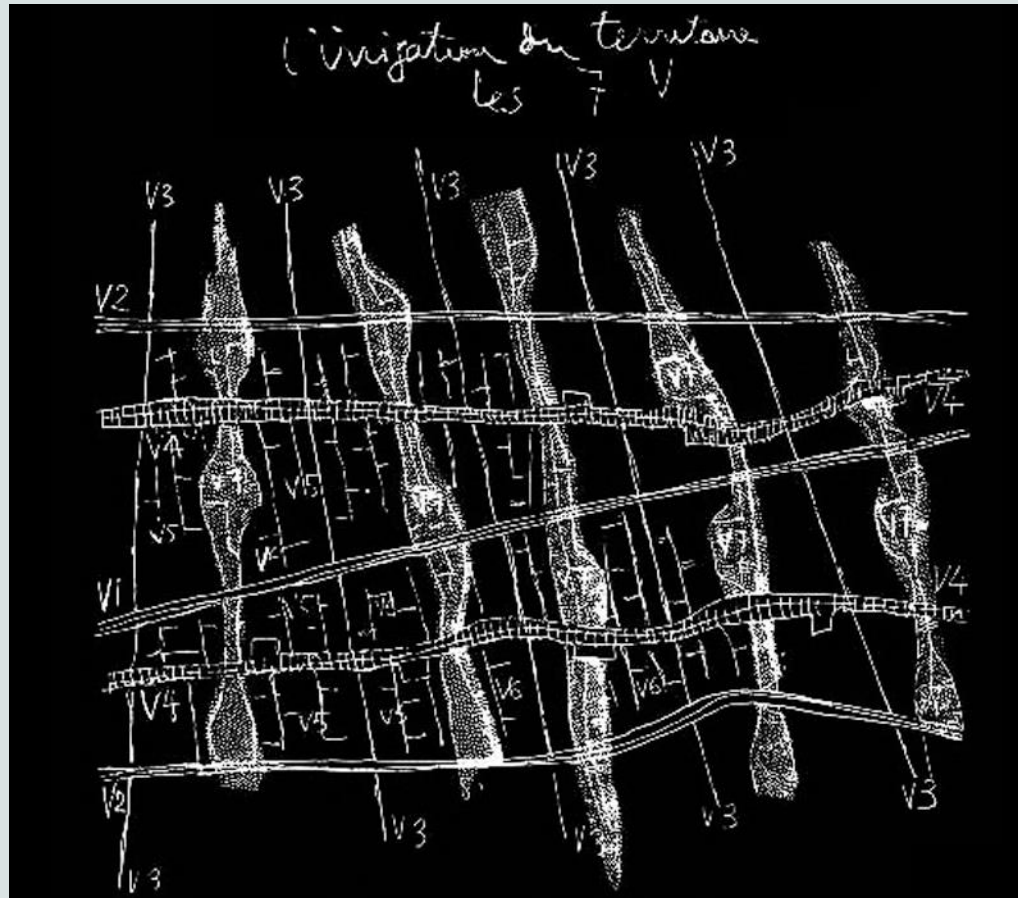 l'irrigation du territoire
les 7 V
V3 V3 V3 V3 V3
V2
V7
V4 V4
V7 V5
V5 V7 V7
V6
V1 V7 V4
V5
V4 V6 V6
V5 V5
V2 V3 V3 V3
V3